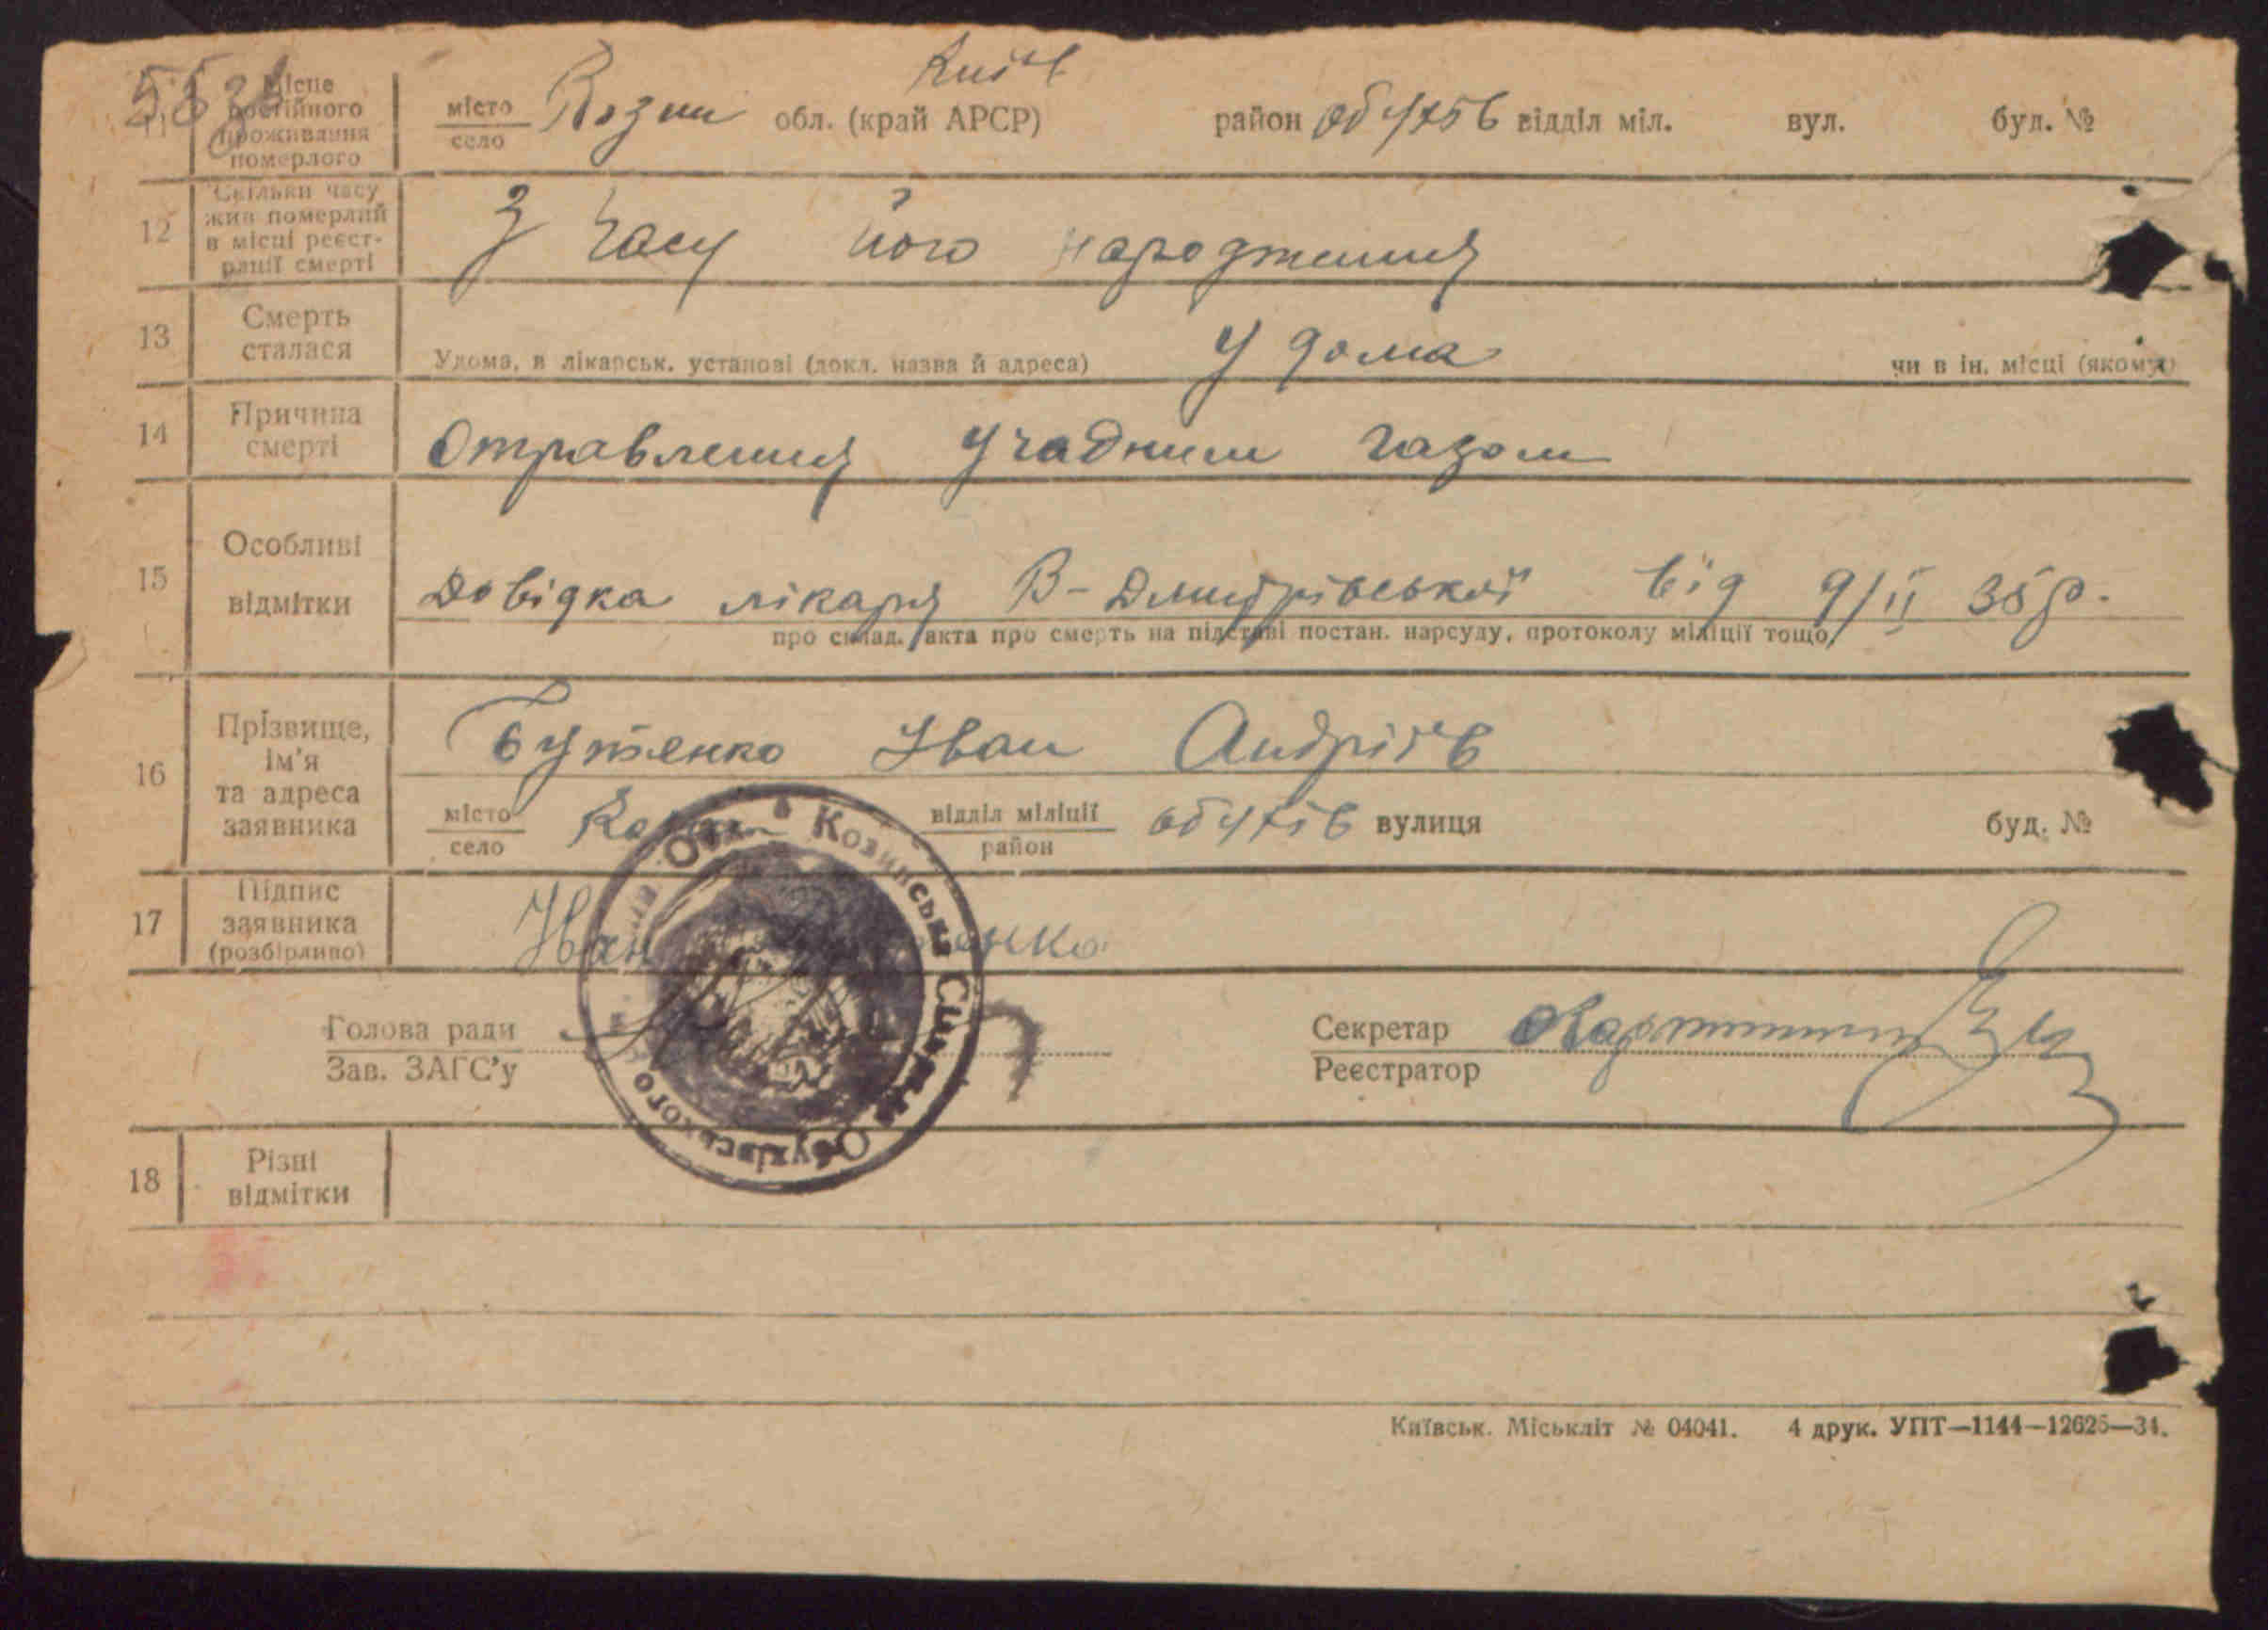 55
11 Місце постійного проживання померлого
місто село Козин обл. (край АРСР) Київ район Обухів відділ міл. вул. буд. №
12 Скільки часу жив померлий в місці реєстрації смерті
З часу його народження
13 Смерть сталася
Удома, в лікарськ. установі (докл. назва й адреса) У дома чи в ін. місці (якому)
14 Причина смерті
Отравлення учадним газом
15 Особливі відмітки
Довідка лікаря В-Дмитрівської від 9/II 35 р.
про склад. акта про смерть на підставі постан. нарсуду, протоколу міліції тощо
16 Прізвище, ім'я та адреса заявника
Бутенко Іван Андріїв
місто село Козин відділ міліції район Обухів вулиця буд. №
17 Підпис заявника (розбірливо)
Іван
Козинська Сільська Обухівського
Голова ради
Зав. ЗАГС'у
Секретар
Реєстратор
18 Різні відмітки
Київськ. Міськліт № 04041. 4 друк. УПТ—1144—12625—34.